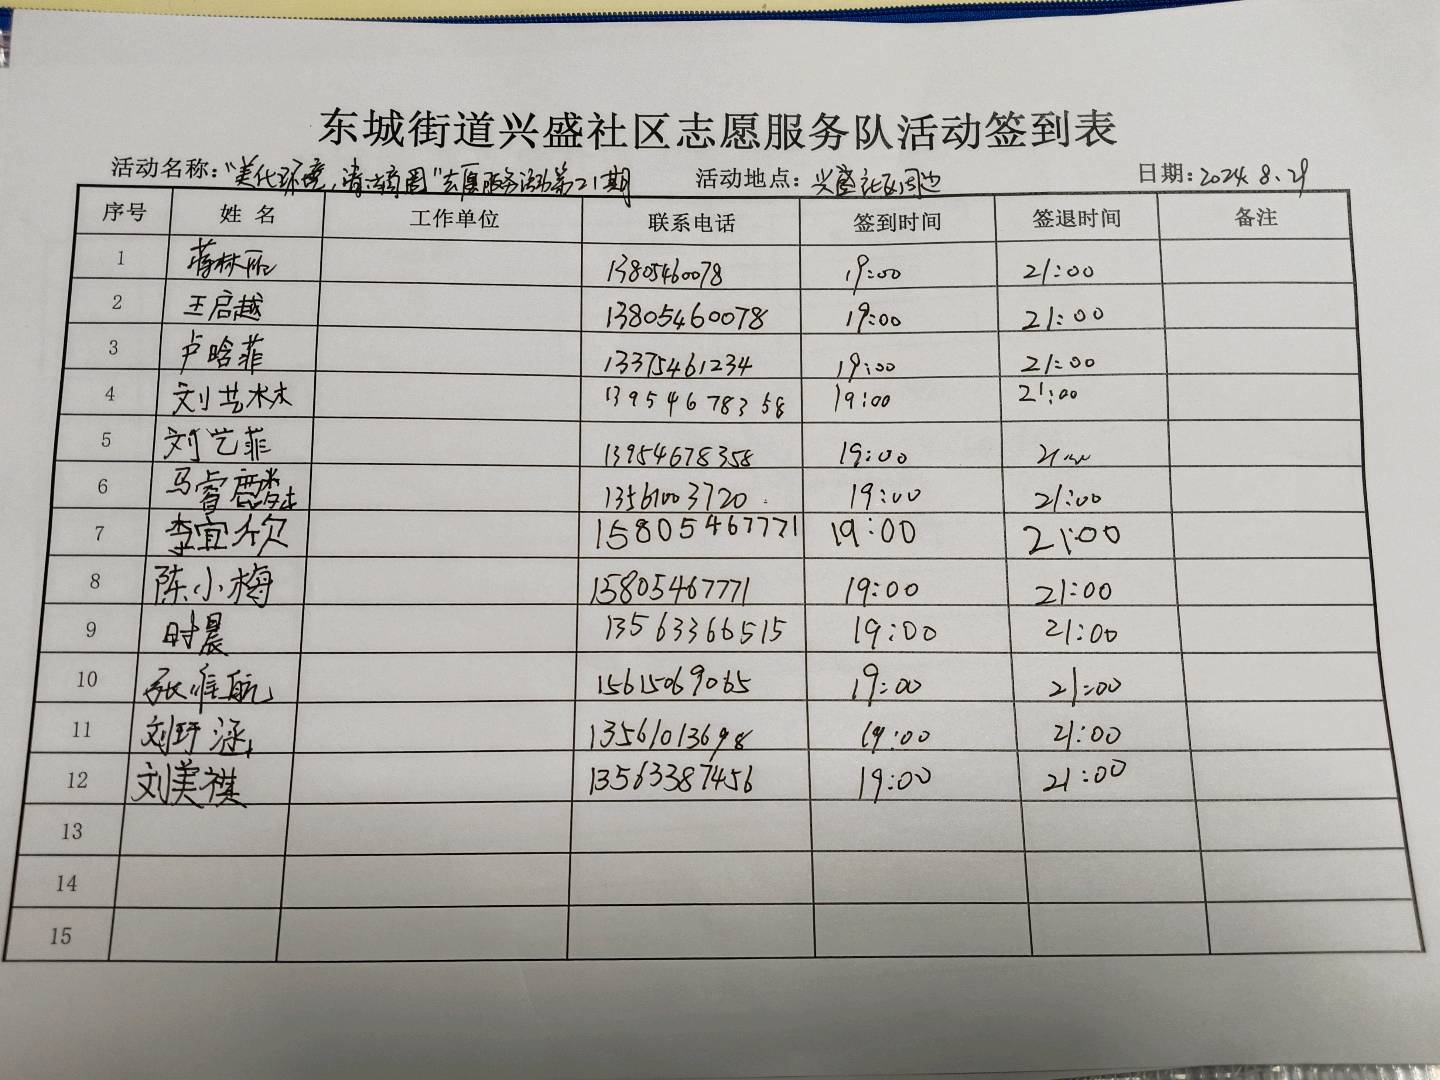 东城街道兴盛社区志愿服务队活动签到表
活动名称："美化环境，清洁商圈"志愿服务活动第21期 活动地点：兴盛社区周边 日期：2024.8.29
序号 姓名 工作单位 联系电话 签到时间 签退时间 备注
1 蒋林丽 13805460078 19:00 21:00
2 王启越 13805460078 19:00 21:00
3 卢晗菲 13375461234 19:00 21:00
4 刘艺林 13954678358 19:00 21:00
5 刘艺菲 13954678358 19:00 21:00
6 马睿麟 13561003720 19:00 21:00
7 李宜欣 15805467771 19:00 21:00
8 陈小梅 15805467771 19:00 21:00
9 时晨 13563366515 19:00 21:00
10 张维航 15615069065 19:00 21:00
11 刘玗涵 13561013698 19:00 21:00
12 刘美祺 13563387456 19:00 21:00
13
14
15